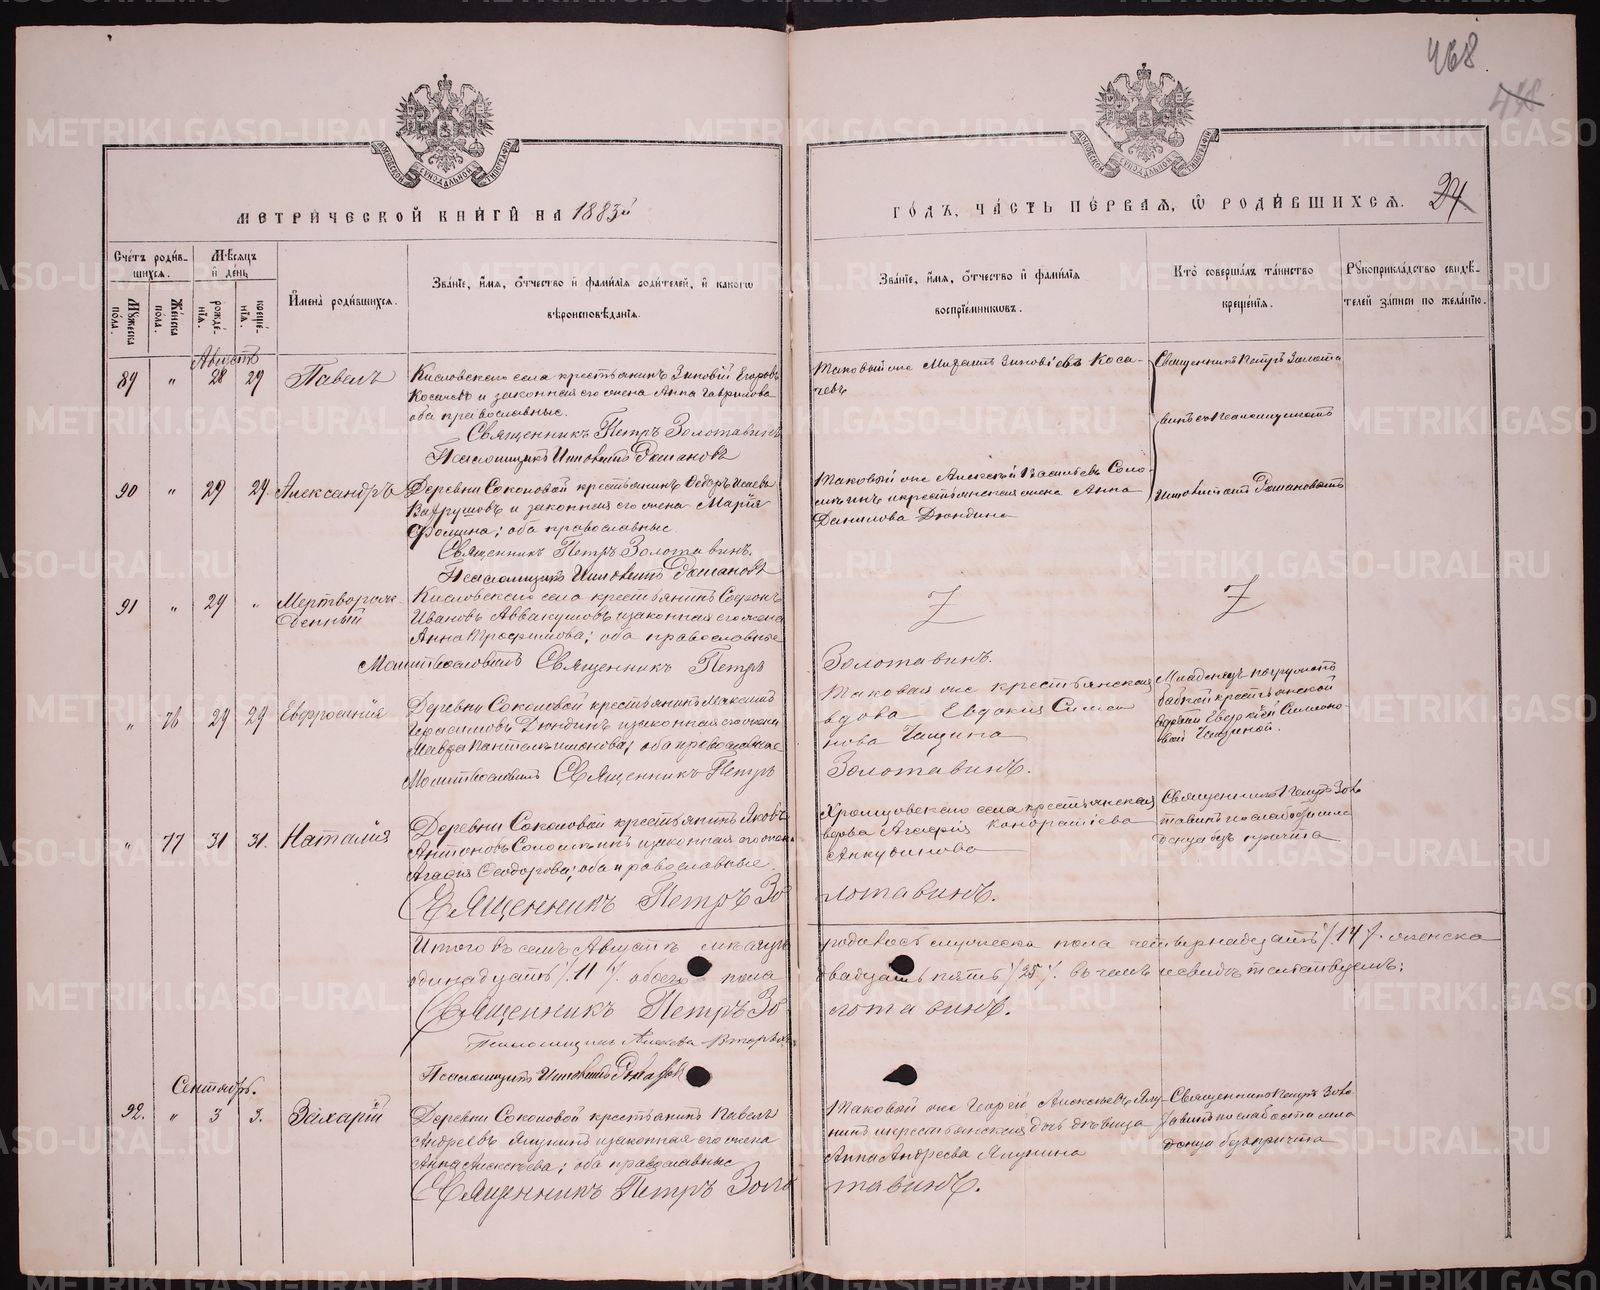 468
418
МЕТРИЧЕСКОЙ КНИГИ НА 1883й
ГОДЪ, ЧАСТЬ ПЕРВАЯ, Ѡ РОДИВШИХСЯ.
24
Счетъ родив-
шихся.
Мѣсяцъ
и день
Мужеска
пола.
Женска
пола.
рожде-
нія.
креще-
нія.
Имена родившихся.
Званіе, имя, отчество и фамилія родителей, и какого
вѣроисповѣданія.
Званіе, имя, отчество и фамилія
воспріемниковъ.
Кто совершалъ таинство
крещенія.
Рукоприкладство свидѣ-
телей записи по желанію.
Августъ
89 „ 28 29 Павелъ
Кисловскаго села крестьянинъ Зиновій Егоровъ
Косачевъ и законная его жена Анна Гаврилова
оба православные.
Священникъ Петръ Золотавинъ
Псаломщикъ
Таковый же Зиновіевъ Коса-
чевъ
Священникъ Петръ Золота
винъ съ Псаломщикомъ
90 „ 29 29. Александръ
Деревни Соколовой крестьянинъ Ѳедоръ Исаевъ
Вахрушовъ и законная его жена Марія
Фомина; оба православные
Священникъ Петръ Золотавинъ.
Псаломщикъ
Таковый же Алексѣй Васильевъ Соло-
и крестьянская жена Анна
Данилова Дюндина
91 „ 29 „ Мертворож-
денный
Кисловскаго села крестьянинъ Софонъ
Ивановъ Аввакумовъ и законная его жена
Анна Трофимова; оба православные
Молитвословилъ Священникъ Петръ
Золотавинъ.
„ 76 29 29 Евфросинія
Деревни Соколовой крестьянинъ
Герасимовъ Дюндинъ и законная его жена
Мавра Пантелеимонова; оба православные
Молитвословилъ Священникъ Петръ
Таковая же крестьянская
вдова Евдокія Симео
нова
Золотавинъ.
Младенецъ погружонъ
бабкой крестьянской
вдовой Евдокіей Симоно-
вой
„ 77 31 31. Наталія
Деревни Соколовой крестьянинъ Яковъ
Антоновъ и законная его жена
Агафія Ѳеодорова; оба православные
Священникъ Петръ Зо
Хромцовскаго села крестьянская
вдова Кондратіева
Анкудинова
лотавинъ.
Священникъ Петръ Золо
тавинъ по слабости мла
денца безъ причта
Итого въ семъ Августѣ мѣсяцѣ
родилось мужеска пола четырнадцать /14/. женска
одинадцать /.11/ обоего пола
двадцать пять /25/. въ чемъ и свидѣтельствуемъ:
Священникъ Петръ Зо
лотавинъ.
Псаломщикъ
Псаломщикъ
Сентябрь.
92. „ 3 3. Захарій
Деревни Соколовой крестьянинъ Павелъ
Андреевъ Ялунинъ и законная его жена
Анна Алексѣева; оба православные
Священникъ Петръ Золо
Таковый же Георгій Алексѣевъ Ялу-
нинъ и крестьянская дочь дѣвица
Анна Андреева Ялунина
тавинъ.
Священникъ Петръ Золо
тавинъ по слабости мла
денца безъ причта